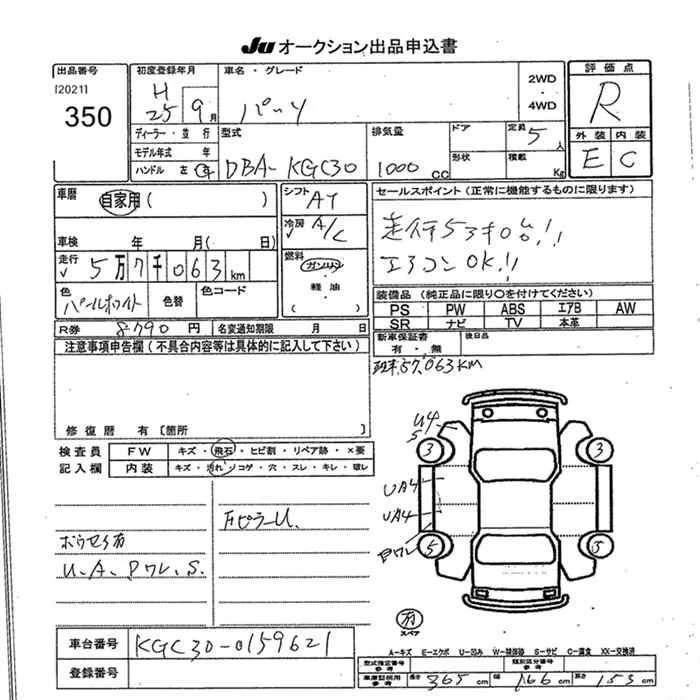 Ju オークション出品申込書
出品番号
[2021]
350
初度登録年月
H
25 9月
車名・グレード
パッソ
2WD
・
4WD
評価点
R
外装 内装
E C
ディーラー・並行
モデル年式 年
ハンドル 左・右
型式
DBA-KGC30
排気量
1000 CC
ドア
形状
定員 5人
積載 Kg
車歴
自家用( )
車検 年 月( 日)
走行
✓ 5万7千063km
色
パールホワイト
色替
色コード
シフト
AT
冷房
✓ A/C
燃料
ガソリン
・
軽油
・
( )
セールスポイント(正常に機能するものに限ります)
走行5万キロ台!!
エアコンOK!!
装備品(純正品に限り○を付けてください)
PS PW ABS エアB AW
SR ナビ TV 本革
新車保証書
有・無
後日品
R券 8790円 名変通知期限 月 日
57,063KM
注意事項申告欄(不具合内容等は具体的に記入して下さい)
修復歴 有〔箇所 〕
検査員
記入欄
FW キズ・飛石・ヒビ割・リペア跡・×要
内装 キズ・汚れ・コゲ・穴・スレ・キレ・破レ
FピラーU.
U.A.ワレ.S.
U4
S
3 3
UA4
UA4
ワレ
5 3
有
スペア
A=キズ E=エクボ U=凹み W=補修跡 S=サビ C=腐食 XX=交換済
車台番号 KGC30-0159621
登録番号
型式指定番号
参考
類別区分番号
参考
車庫証明用
参考
長さ 365cm 幅 166cm 高さ 153cm